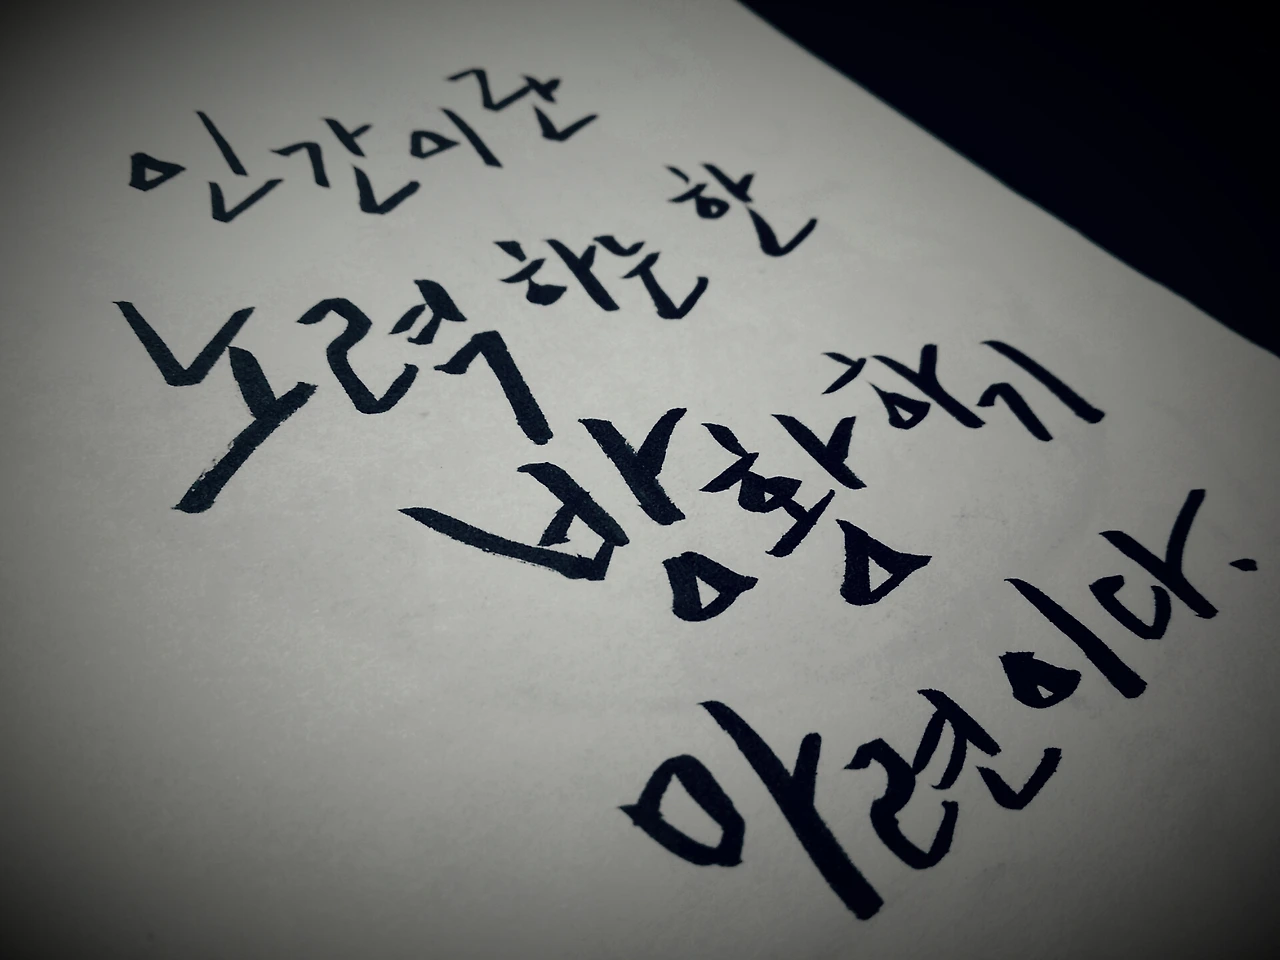 인간이란
노력하는 한
방황하기
마련이다.